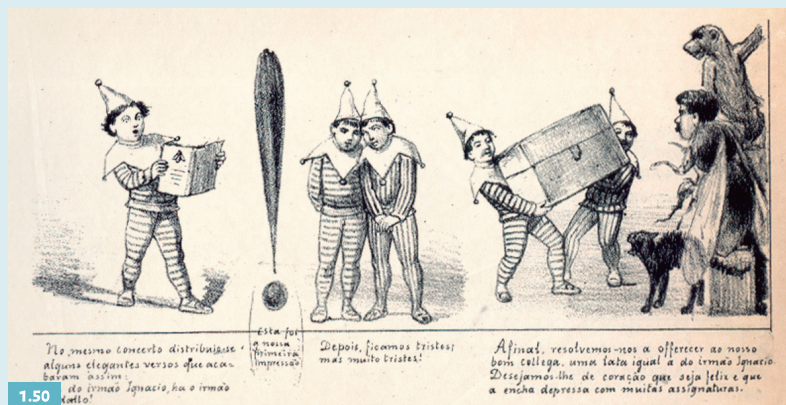 No mesmo concerto distribuio-se
alguns elegantes versos que aca-
bavam assim:
do irmão Ignacio, ha o irmão
dallo!
Esta foi
a nossa
primeira
impressão
Depois, ficamos tristes;
mas muito tristes!
Afinal, resolvemos-nos a offerecer ao nosso
bom collega, uma lata igual a do irmão Ignacio.
Desejamos-lhe de coração que seja feliz e que
a encha depressa com muitas assignaturas.
1.50